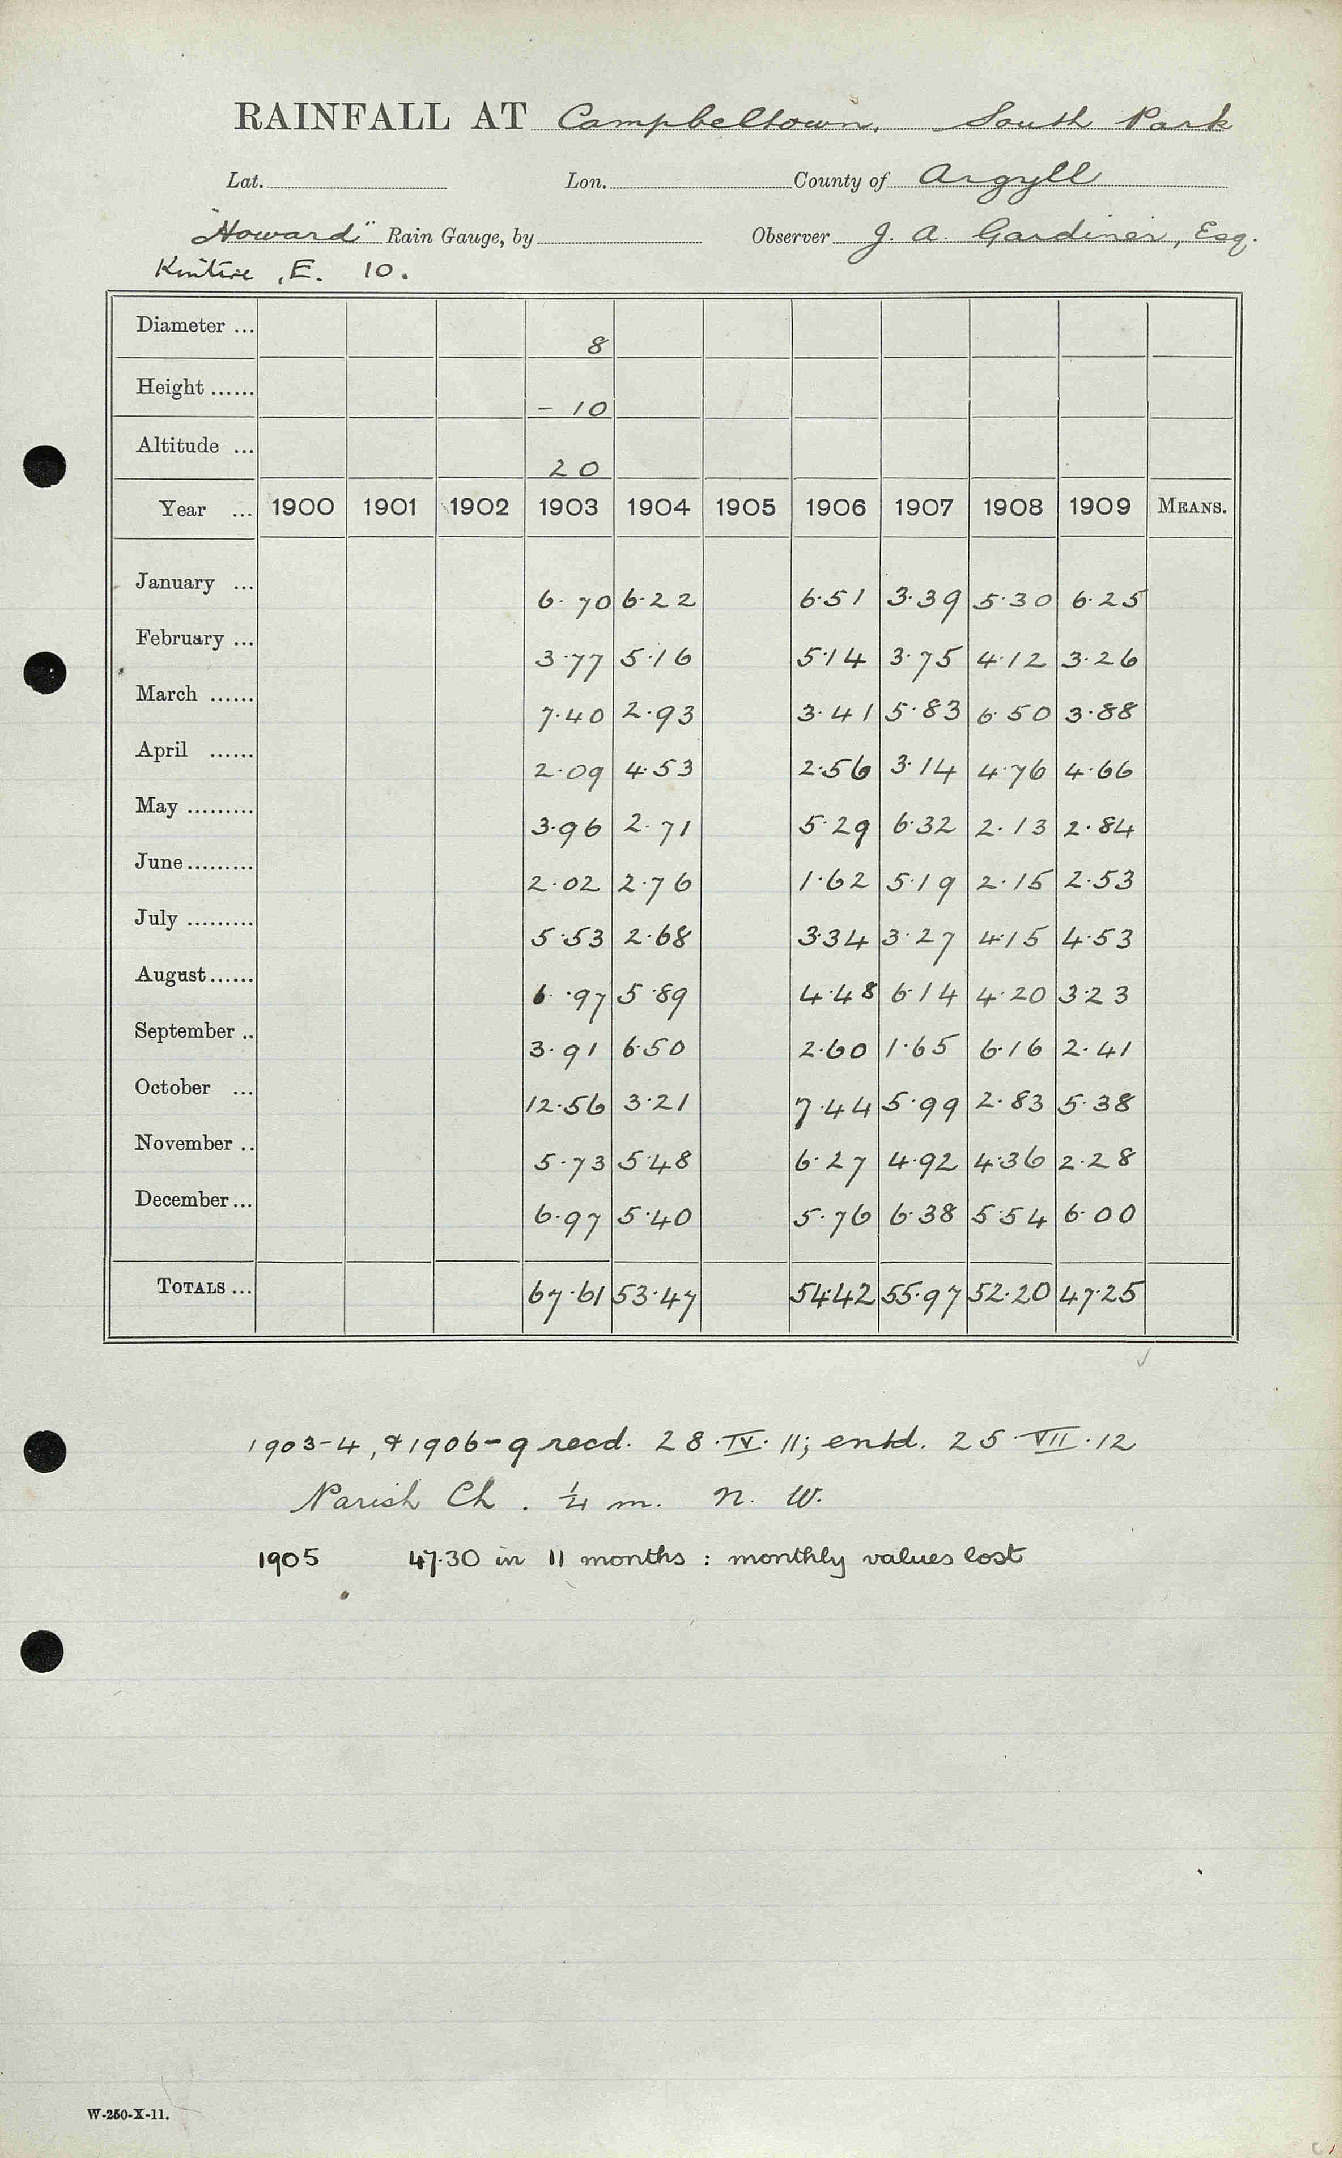 RAINFALL AT Campbeltown, South Park
Lat. Lon. County of Argyll
"Howard" Rain Gauge, by Observer J. A. Gardiner, Esq.
Kintire, E. 10.
Diameter ... 8
Height ...... - 10
Altitude ... 20
Year ... 1900 1901 1902 1903 1904 1905 1906 1907 1908 1909 MEANS.
January ... 6.70 6.22 6.51 3.39 5.30 6.25
February ... 3.77 5.16 5.14 3.75 4.12 3.26
March ...... 7.40 2.93 3.41 5.83 6.50 3.88
April ...... 2.09 4.53 2.56 3.14 4.76 4.66
May ......... 3.96 2.71 5.29 6.32 2.13 2.84
June ......... 2.02 2.76 1.62 5.19 2.15 2.53
July ......... 5.53 2.68 3.34 3.27 4.15 4.53
August ...... 6.97 5.89 4.48 6.14 4.20 3.23
September .. 3.91 6.50 2.60 1.65 6.16 2.41
October ... 12.56 3.21 7.44 5.99 2.83 5.38
November .. 5.73 5.48 6.27 4.92 4.36 2.28
December ... 6.97 5.40 5.76 6.38 5.54 6.00
TOTALS ... 67.61 53.47 54.42 55.97 52.20 47.25
1903-4, & 1906-9 recd. 28.IV.11; entd. 25.VII.12
Parish Ch. ¼ m. N. W.
1905 47.30 in 11 months : monthly values lost
W-250-X-11.